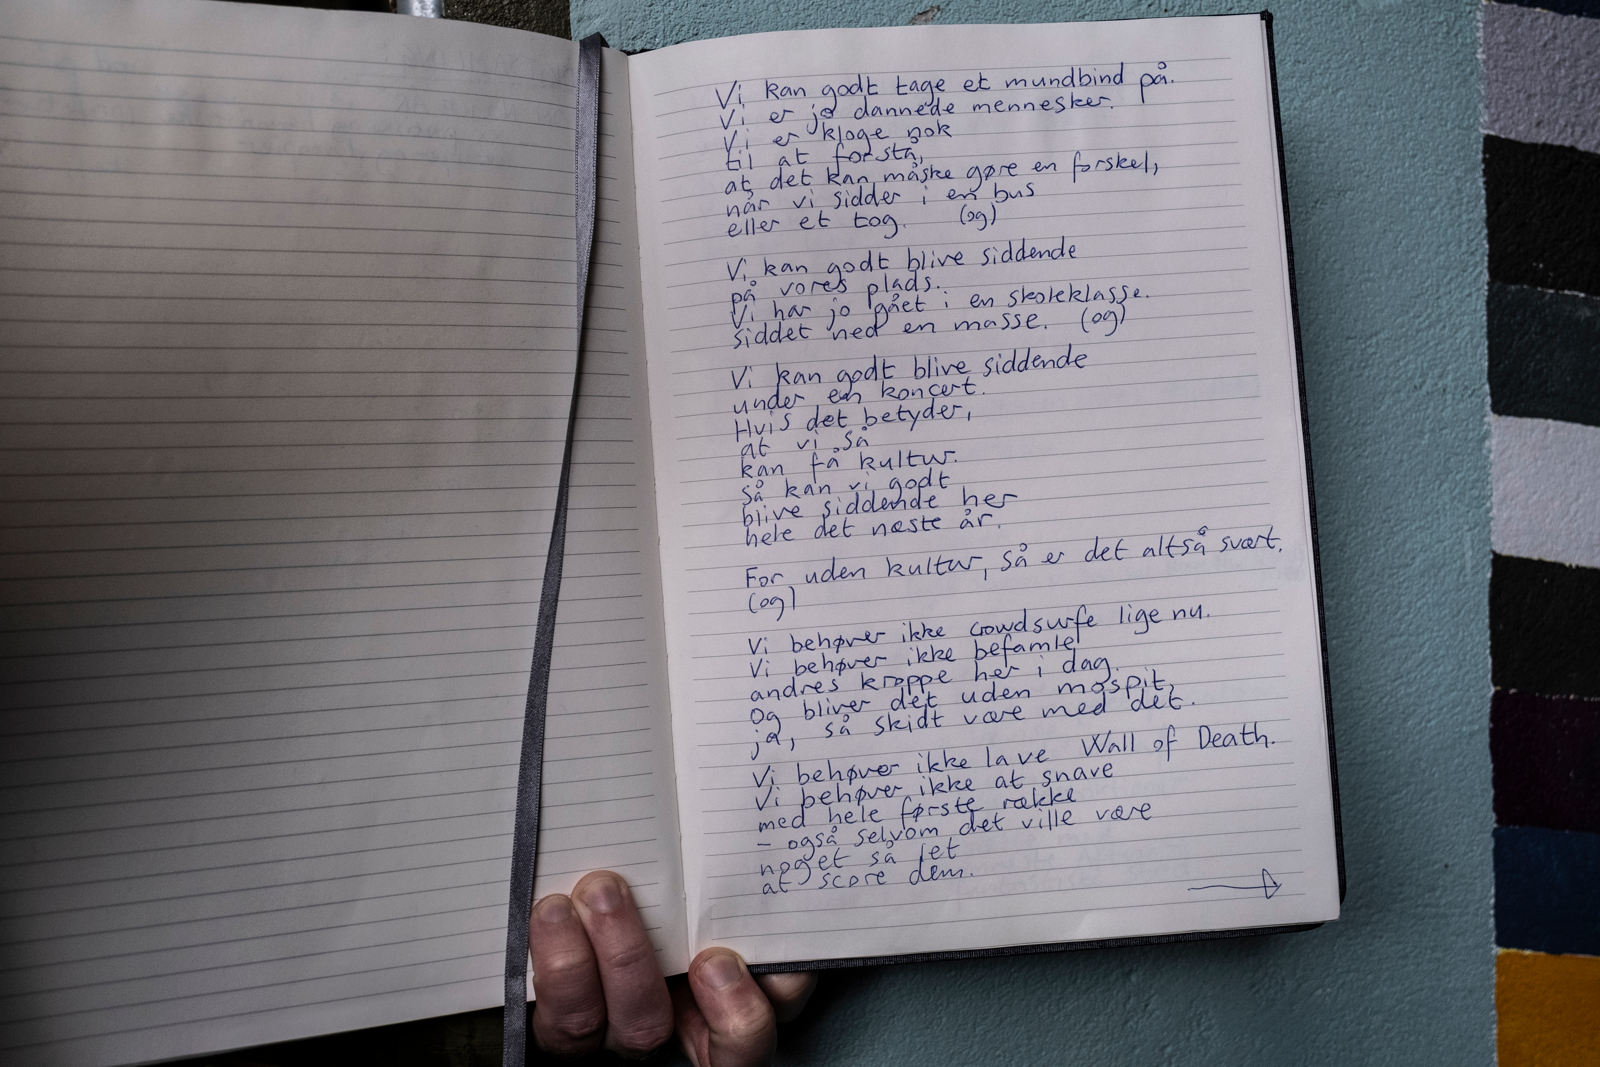 Vi kan godt tage et mundbind på.
Vi er jo dannede mennesker.
Vi er kloge nok
til at forstå,
at det kan måske gøre en forskel,
når vi sidder i en bus
eller et tog. (og)
Vi kan godt blive siddende
på vores plads.
Vi har jo gået i en skoleklasse.
siddet ned en masse. (og)
Vi kan godt blive siddende
under en koncert.
Hvis det betyder,
at vi så
kan få kultur.
Så kan vi godt
blive siddende her
hele det næste år.
For uden kultur, så er det altså svært.
(og)
Vi behøver ikke crowdsurfe lige nu.
Vi behøver ikke befamle
andres kroppe her i dag.
Og bliver det uden mospit,
ja, så skidt være med det.
Vi behøver ikke lave Wall of Death.
Vi behøver ikke at snave
med hele første række
– også selvom det ville være
noget så let
at score dem.